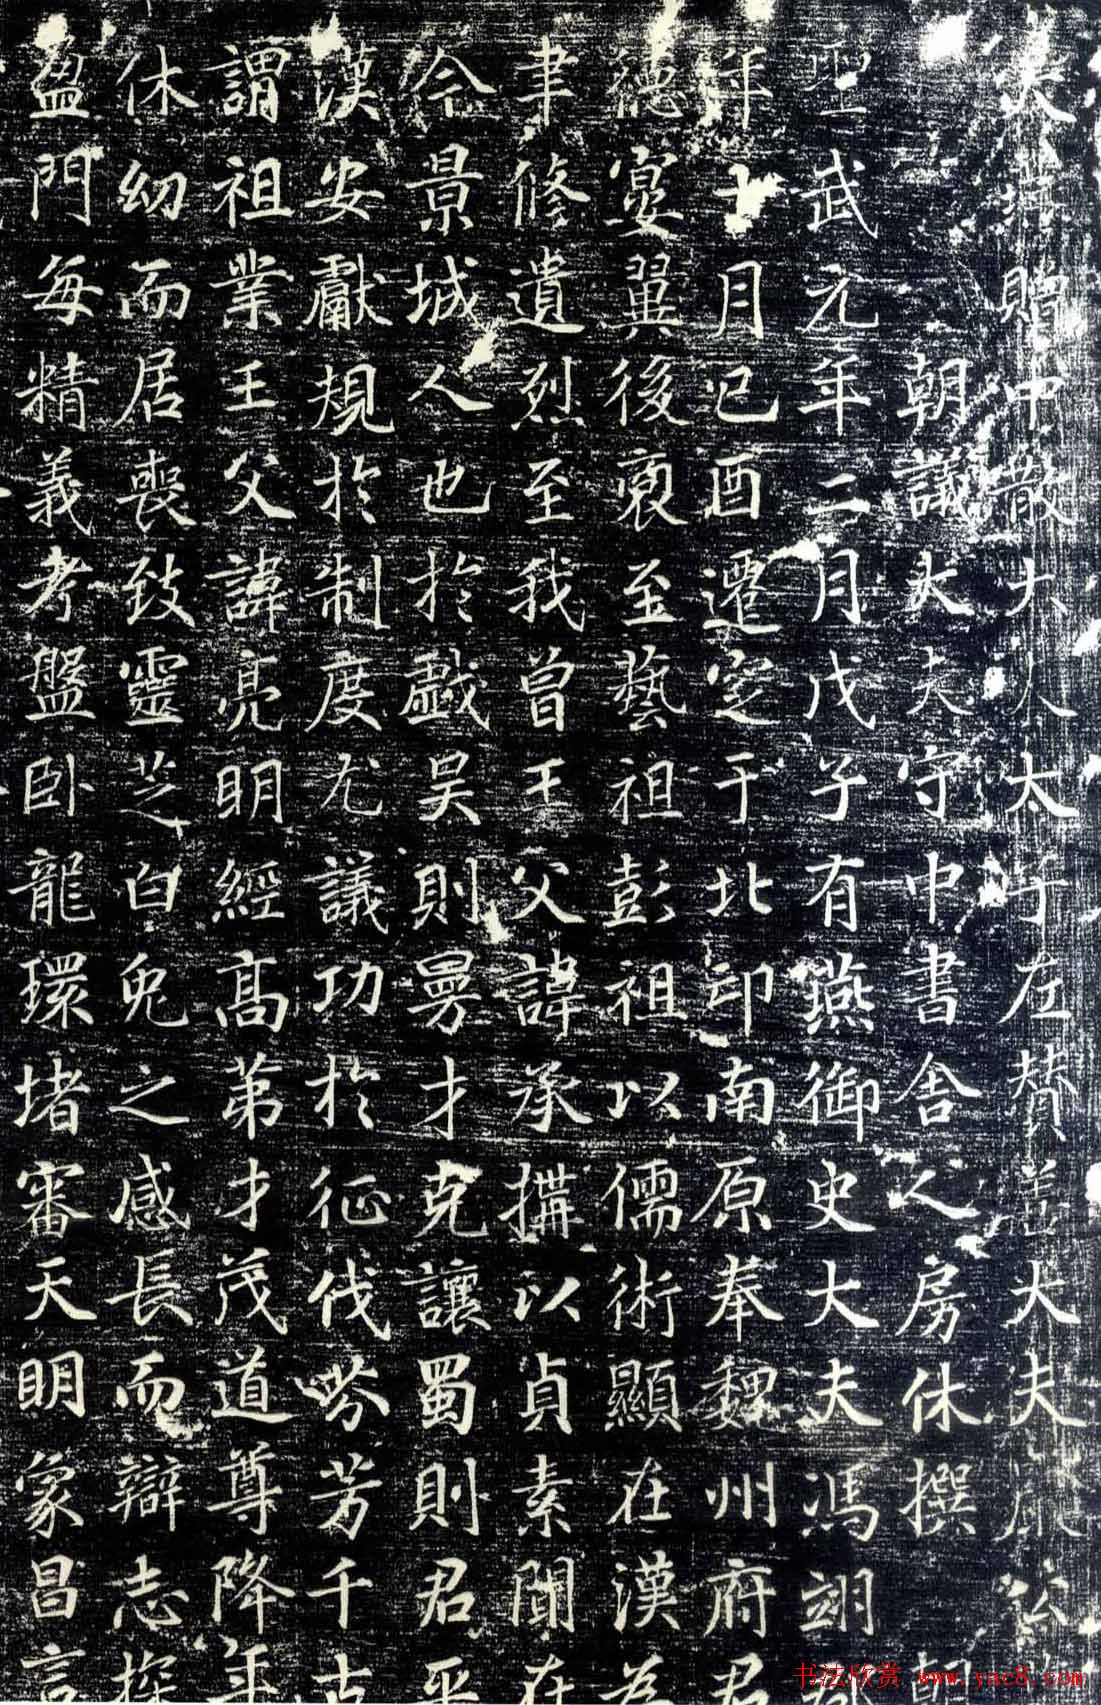 大燕贈中散大夫太子左贊善大夫嚴公
朝議大夫守中書舍人房休撰
聖武元年二月戊子有燕御史大夫馮翊
年十月己酉遷窆于北邙南原奉魏州府君
德寔翼後裔至藝祖彭祖以儒術顯在漢為
聿修遺烈至我曾王父諱承構以貞素聞在
今景城人也於戲吳則曼才克讓蜀則君平
漢安獻規於制度尤議功於征伐芬芳千古
謂祖業王父諱亮明經高第才茂道尊降年
休幼而居喪致靈芝白兔之感長而辯志探
盈門每精義考盤卧龍環堵審天明象昌言
书法欣赏 www.yac8.com